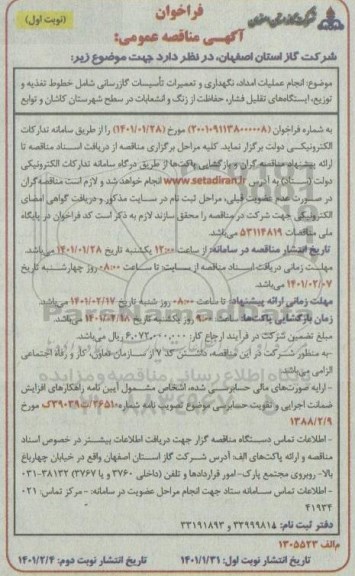 فراخوان
(نوبت اول)
آگهی مناقصه عمومی:
شرکت گاز استان اصفهان، در نظر دارد جهت موضوع زیر:
موضوع: انجام عملیات امداد، نگهداری و تعمیرات تأسیسات گازرسانی شامل خطوط تغذیه و
توزیع، ایستگاههای تقلیل فشار، حفاظت از زنگ و انشعابات در سطح شهرستان کاشان و توابع
به شماره فراخوان (2001091138000008) مورخ (1401/01/28) را از طریق سامانه تدارکات
الکترونیکی دولت برگزار نماید. کلیه مراحل برگزاری مناقصه از دریافت اسناد مناقصه تا
ارائه پیشنهاد مناقصه گران و بازگشایی پاکت‌ها از طریق درگاه سامانه تدارکات الکترونیکی
دولت (ستاد) به آدرس www.setadiran.ir انجام خواهد شد و لازم است مناقصه گران
در صورت عدم عضویت قبلی، مراحل ثبت نام در سایت مذکور و دریافت گواهی امضای
الکترونیکی جهت شرکت در مناقصه را محقق سازند لازم به ذکر است کد فراخوان در پایگاه
ملی مناقصات 53114819 می‌باشد.
تاریخ انتشار مناقصه در سامانه: از ساعت 12:00 یکشنبه تاریخ 1401/01/28 می‌باشد.
مهلت زمانی دریافت اسناد مناقصه از سایت: تا ساعت 08:00 روز چهارشنبه تاریخ
1401/02/07 می‌باشد.
مهلت زمانی ارائه پیشنهاد: تا ساعت 08:00 روز شنبه تاریخ 1401/02/17 می‌باشد.
زمان بازگشایی پاکت‌ها: ساعت روز یکشنبه تاریخ می‌باشد.
مبلغ تضمین شرکت در فرآیند ارجاع کار: ریال می‌باشد.
-به منظور شرکت در این مناقصه، داشتن کد 7 از سازمان تعاون، کار و رفاه اجتماعی
الزامی می‌باشد.
- ارایه صورت‌های مالی حسابرسی شده، اشخاص مشمول آیین نامه راهکارهای افزایش
ضمانت اجرایی و تقویت حسابرسی موضوع تصویب نامه شماره مورخ
1388/2/9
- اطلاعات تماس دستگاه مناقصه گزار جهت دریافت اطلاعات بیشتر در خصوص اسناد
مناقصه و ارائه پاکت‌های الف آدرس شرکت گاز استان اصفهان واقع در خیابان چهارباغ
بالا- روبروی مجتمع پارک- امور قراردادها و تلفن (داخلی 3760 و یا 3767) 38132-031
- اطلاعات تماس سامانه ستاد جهت انجام مراحل عضویت در سامانه: - مرکز تماس: 021
41934
دفتر ثبت نام: 33999818 و 33191893
م‌الف 1305523
تاریخ انتشار نوبت اول: 1401/1/31 تاریخ انتشار نوبت دوم: 1401/2/4